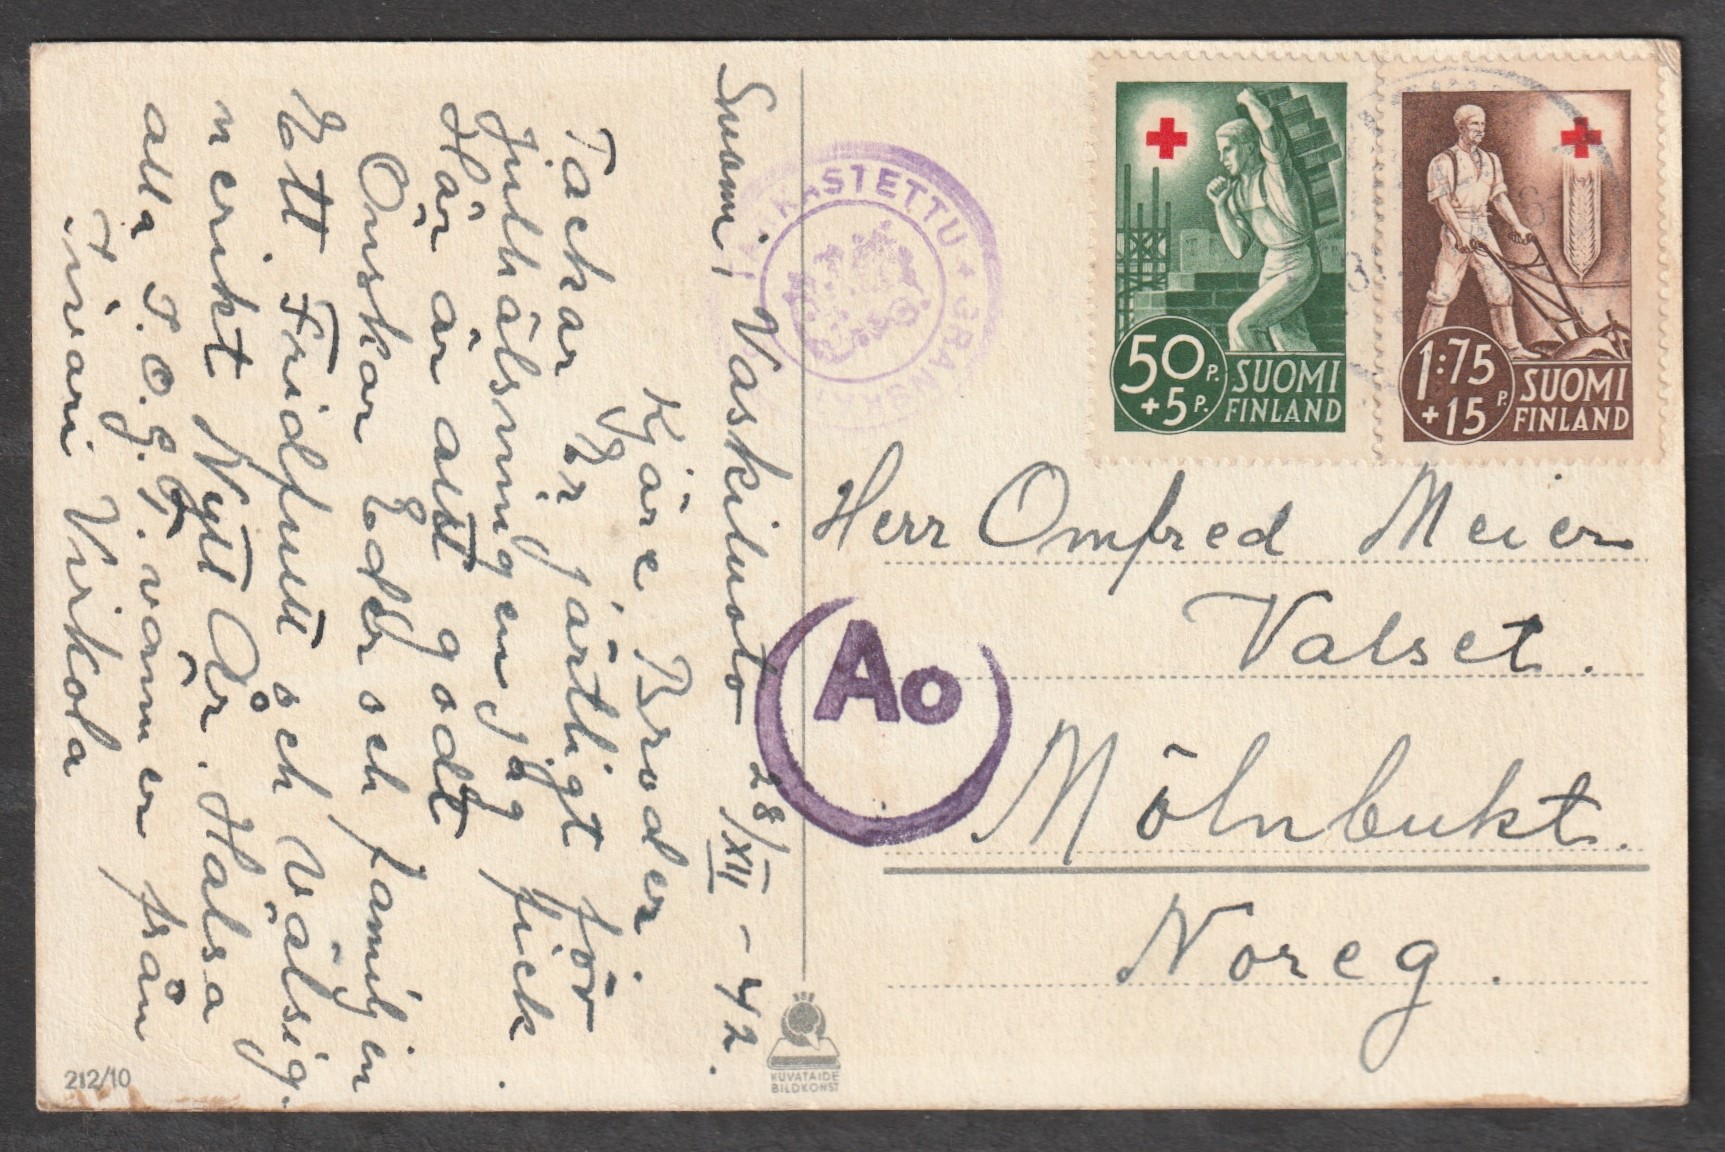 Suomi, Vaskiluoto 28/XII – 42.
Kjäre Broder
Tackar Er järtligt för
Julhälsningen jag fick.
Här är allt godt
Önskar Eder och familjen
Ett Fridfullt och Välsig-
nerikt Nytt År. Hälsa
alla I.O.G.T. vänner från
Virkola
TARKASTETTU + GRANSKAT
50 P.
+5 P.
SUOMI
FINLAND
1:75
+15 P.
SUOMI
FINLAND
Herr Omfred Meier
Valset.
Mölnbukt.
Noreg.
Ao
212/10
KUVATAIDE
BILDKONST